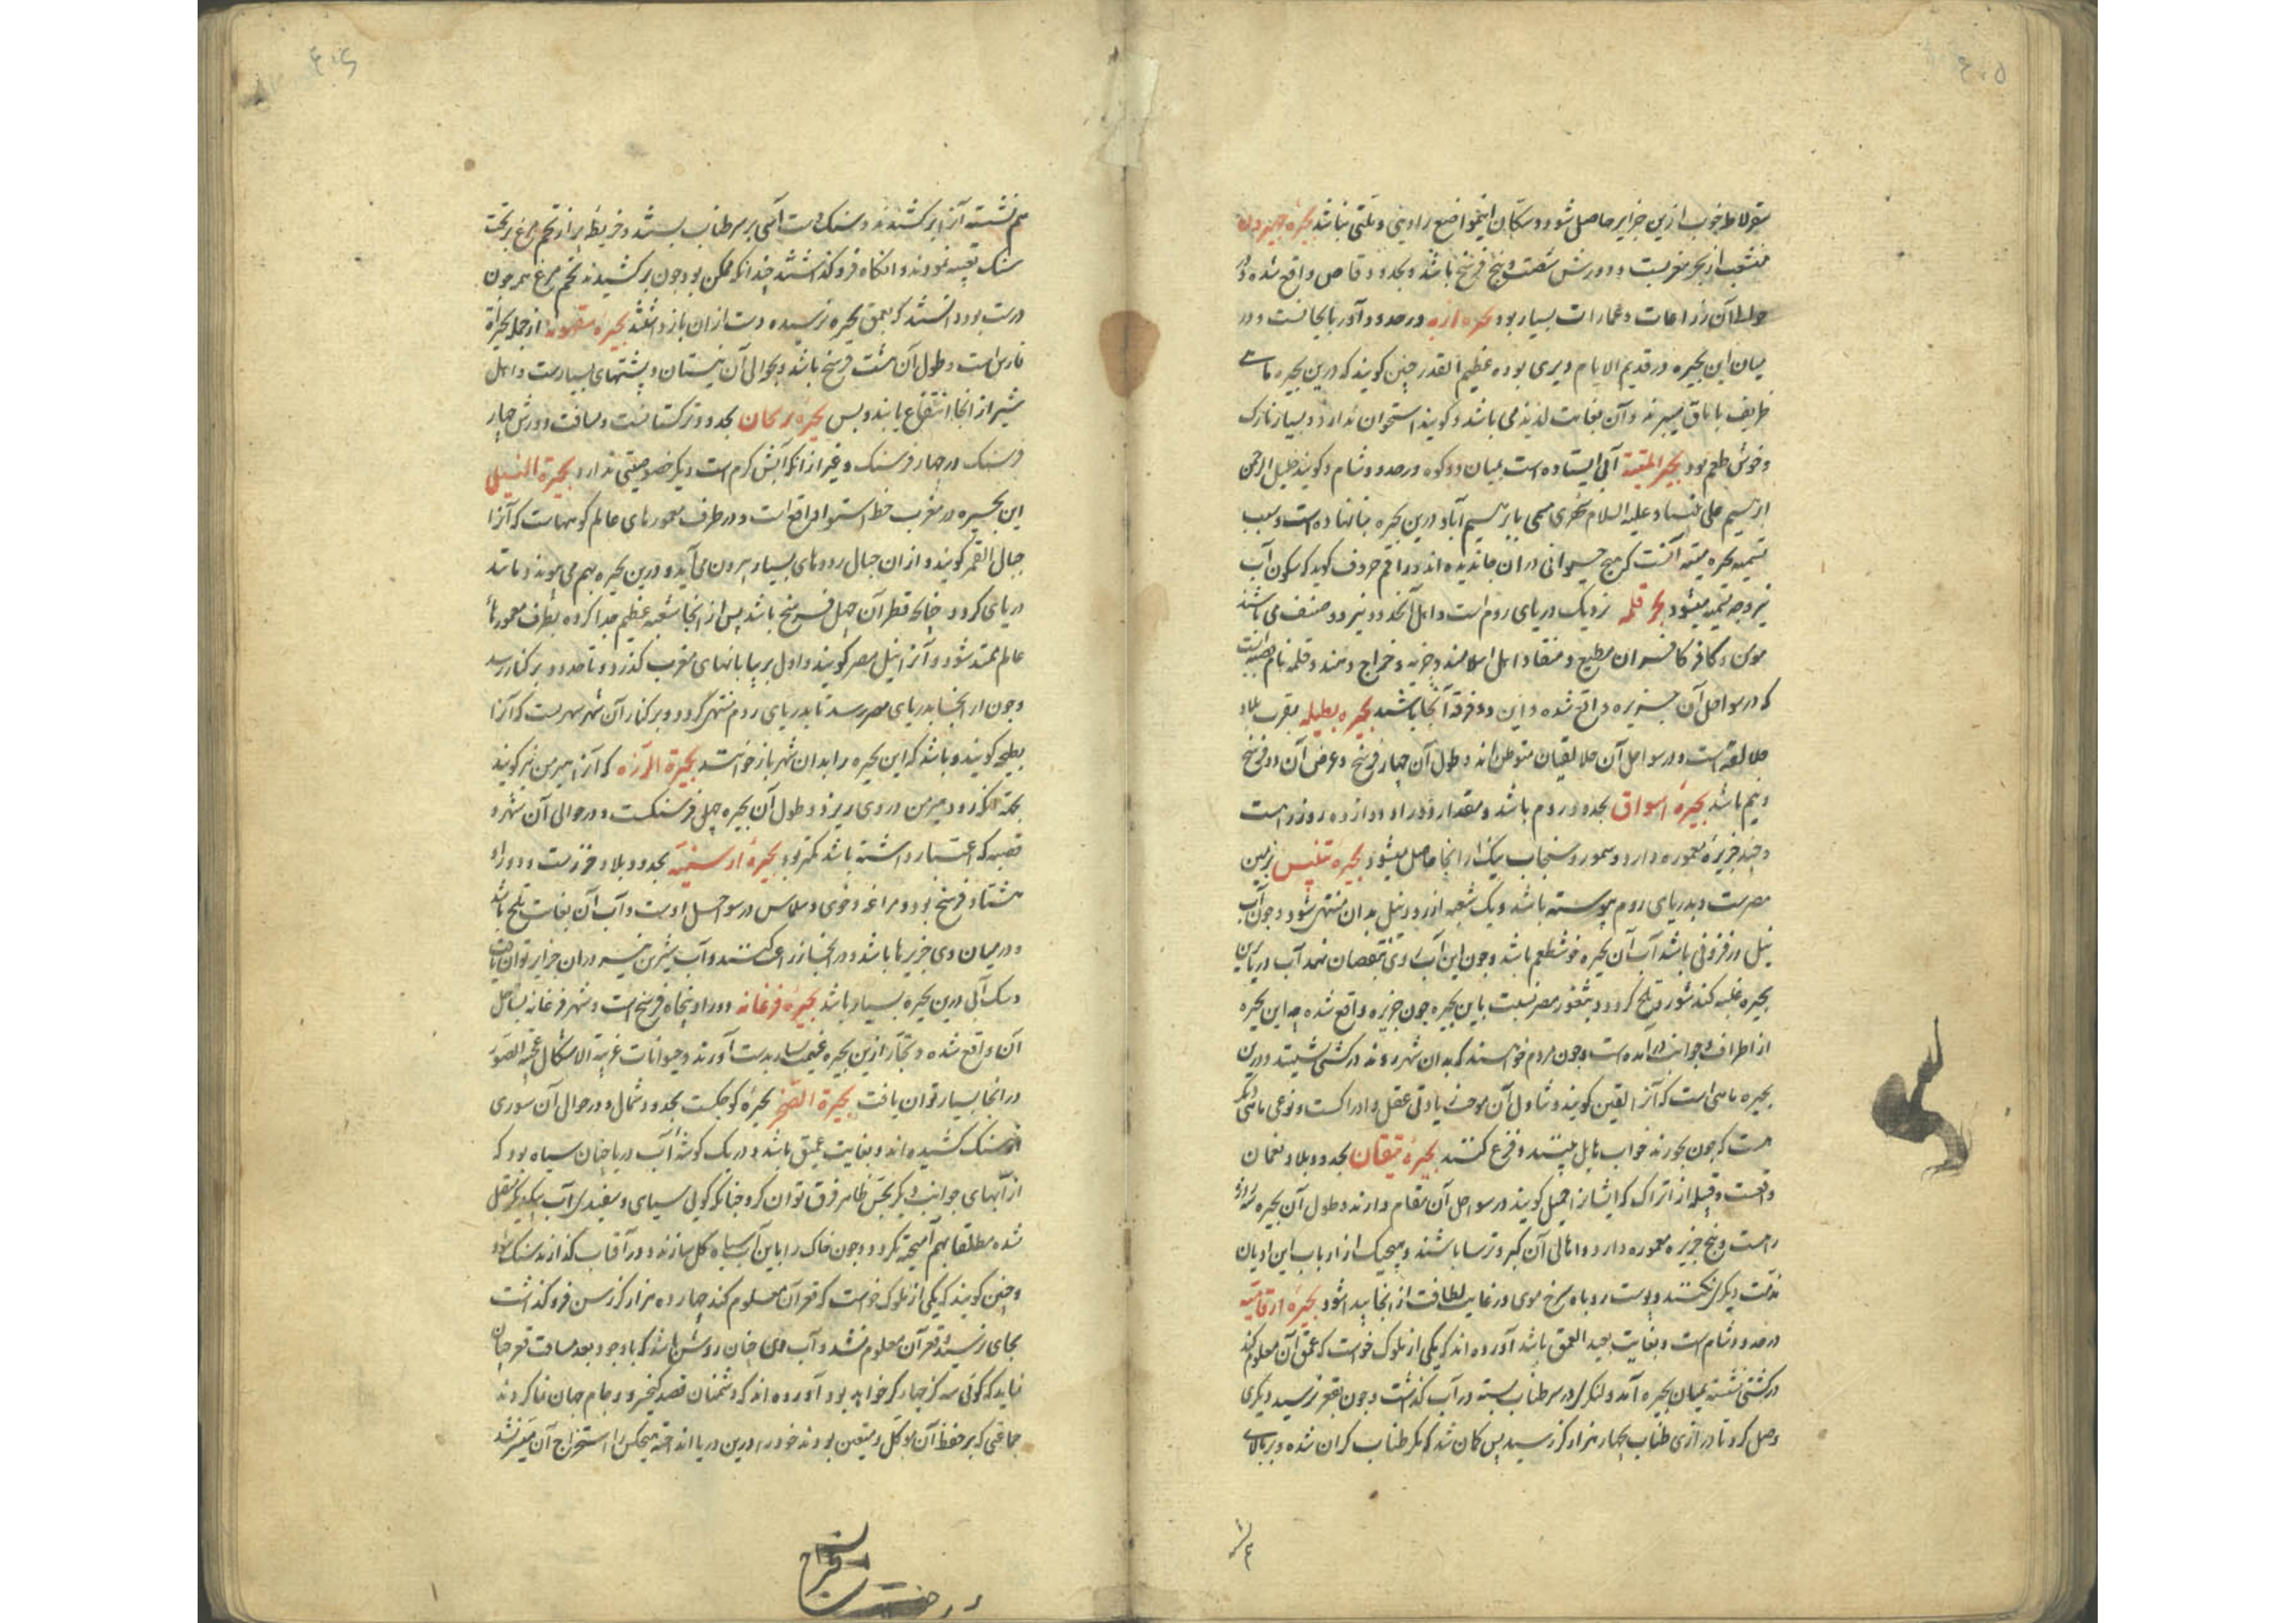 ۴۰۵
سقرلاط خوب ازین جزایر حاصل شود و سکان اینمواضع را دینی و ملتی نباشد بحیره
منشعب از بحر مغربست و دورش شصت و پنج فرسخ باشد و بحدود واقع شده و در
حوالی آن زراعات و عمارات بسیار بود بحیره در حدود آذربایجانست و در
میان این بحیره در قدیم الایام دیری بوده عظیم القدر چنین کویند که درین بحیره ماهی
ظریف می باشد و کویند استخوان ندارد و بسیار نازک
و خوش طعم بود بحیر المیتة آبی ایستاده است میان دو کوه در حدود شام و کویند خلیل الرحمن
ابرهیم علی نبینا و علیه السلام درین بحیره بنا نهاده است و سبب
تسمیه بحیره میته آنست که هیچ حیوانی در آن ندیده اند و راقم حروف کوید که سکون آب
نیز وجه تسمیه میشود بحر قلمه نزدیک دریای روم است و اهل آنحدود نیز دو صنف می باشند
مومن و کافر کافران مطیع و منقاد اهل اسلامند و جزیه و خراج دهند و قلمه نام قصبه ایست
که در سواحل آن جزیره واقع شده و این دو فرقه آنجا باشند بحیره بطیله بقرب بلاد
است و در سواحل آن متوطن اند و طول آن چهار فرسخ و عرض آن دو فرسخ
و نیم باشد بحیرهٔ اسواق بحدود روم باشد و مقدار دور او دوازده روزه راهست
و چند جزیرهٔ معموره دارد و سمور و سنجاب نیک از آنجا حاصل میشود بحیرهٔ تنیس بزمین
مصرست و بدریای روم پیوسته باشد و یک شعبه از رود نیل بدان منتهی شود و چون آب
نیل در فزونی باشد آب آن بحیره خوشطعم باشد و چون این آب روی بنقصان نهد آب دریا برین
بحیره غلبه کند شور و تلخ کردد و بثغور مصر نسبت باین بحیره چون جزیره واقع شده چه این بحیره
از اطراف و جوانب درآمده است و چون مردم خواهند که بدان شهر روند در کشتی نشینند و درین
بحیره ماهی است که آنرا کویند و تناول آن موجب زیادتی عقل و ادراکست و نوعی ماهی دیگر
هست که چون بخورند خواب هایل بینند و فزع کنند بحیرهٔ بحدود بلاد
واقعست و قبیلهٔ از اتراک که ایشانرا کویند در سواحل آن مقام دارند و طول آن بحیره
راهست و پنج جزیره معموره دارد و اهالی آن کبر و ترسا باشند و هیچیک از ارباب این ادیان
مذمت دیگری نکنند و پوست روباه سرخ موی در غایت لطافت از آنجا پیدا شود بحیرهٔ
در حدود شام است و بغایت بعید العمق باشد آورده اند که یکی از ملوک خواست که عمق آن معلوم کند
در کشتی نشسته بمیان بحیره آمد و لنکر در سر طناب بسته در آب کذاشت و چون بقعر نرسید دیکری
وصل کرد تا درازی طناب بچهار هزار کز رسید پس کمان شد که مکر طناب کران شده و بر بالای
۴۰۶
هم نشسته آنرا برکشیدند و سنک دست آسی بر سر طناب بستند و خریطهٔ پر از تخم مرغ بر تحت
سنک تعبیه نمودند و آنکاه فرو کذاشتند چندانکه ممکن بود چون برکشیدند تخم مرغ همچون
درست بود دانستند که بعمق بحیره نرسیده دست از آن باز داشتند بحیرهٔ از جمله بحیرات
فارس است و طول آن هشت فرسخ باشد و بحوالی آن نیستان و پشتهای بسیارست و اهل
شیراز از آنجا انتفاع یابند و بس بحیرهٔ بحدود ترکستانست و مسافت دورش چهار
فرسنک در چهار فرسنک و غیر از آنکه آبش کرم است دیکر خصوصیتی ندارد بحیرة النیل
این بحیره در مغرب خط استوا واقع است و در طرف معمورهای عالم کوههاست که آنرا
جبال القمر کویند و از آن جبال رودهای بسیار بیرون می آید و درین بحیره بهم می پیوندد و مانند
دریای کردد چنانکه قطر آن چهل فرسخ باشد پس از آنجا شعبه عظیم جدا کرده بطرف معمورهٔ
عالم ممتد شود و آنرا نیل مصر کویند و اول بر بیابانهای مغرب کذرد و تا حدود بر کنار رسد
و چون از آنجا بدریای مصر رسد تا بدریای روم منتهی کردد و بر کنار آن شهر شهریست که آنرا
بطیحه کویند و باشد که این بحیره را بدان شهر باز خوانند بحیرة که آنرا نیز کویند
و طول آن بحیره چهل فرسنکست و در حوالی آن شهر و
قصبه که اعتبار داشته باشد کمتر بود بحیرهٔ ارمنیه بحدود بلاد خزرست و دور او
هشتاد فرسخ بود و مراغه و خوی و سلماس در سواحل اوست و آب آن بغایت تلخ باشد
و در میان وی جزیرها باشد و در آنجا زراعت کنند و آب شیرین نیز در آن جزایر توان یافت
و سک آبی درین بحیره بسیار باشد بحیرهٔ فرغانه دور او پنجاه فرسخ است و شهر فرغانه بساحل
آن واقع شده و تجار ازین بحیره غنیمت بسیار بدست آورند و حیوانات غریبة الاشکال عجیبة الصور
در آنجا بسیار توان یافت بحیرة بحیرهٔ کوچکست بحدود شمال و در حوالی آن سوری
از سنک کشیده اند و بغایت عمیق باشد و در یک کوشهٔ آب دریا چنان سیاه بود که
از آبهای جوانب دیکر بحس ظاهر فرق توان کرد چنانکه کویی سیاهی و سفیدی آب بیکدیکر متصل
شده مطلقا بهم آمیخته نکردد و چون خاک را باین آب سیاه کل سازند و در آفتاب کذارند سنک شود
و چنین کویند که یکی از ملوک خواست که قعر آن معلوم کند چهارده هزار کز رسن فرو کذاشت
بجای نرسید و قعر آن معلوم نشد و آب وی چنان روشن باشد که باوجود بعد مسافت قعر چنان
نماید که کوئی سه کز چهار کز خواهد بود آورده اند که دشمنان قصد کیخسرو و جام جهان نما کردند
جماعتی که بر حفظ آن موکل و متعین بودند خود را درین دریا انداخته هیچکس را استخراج آن میسر نشد